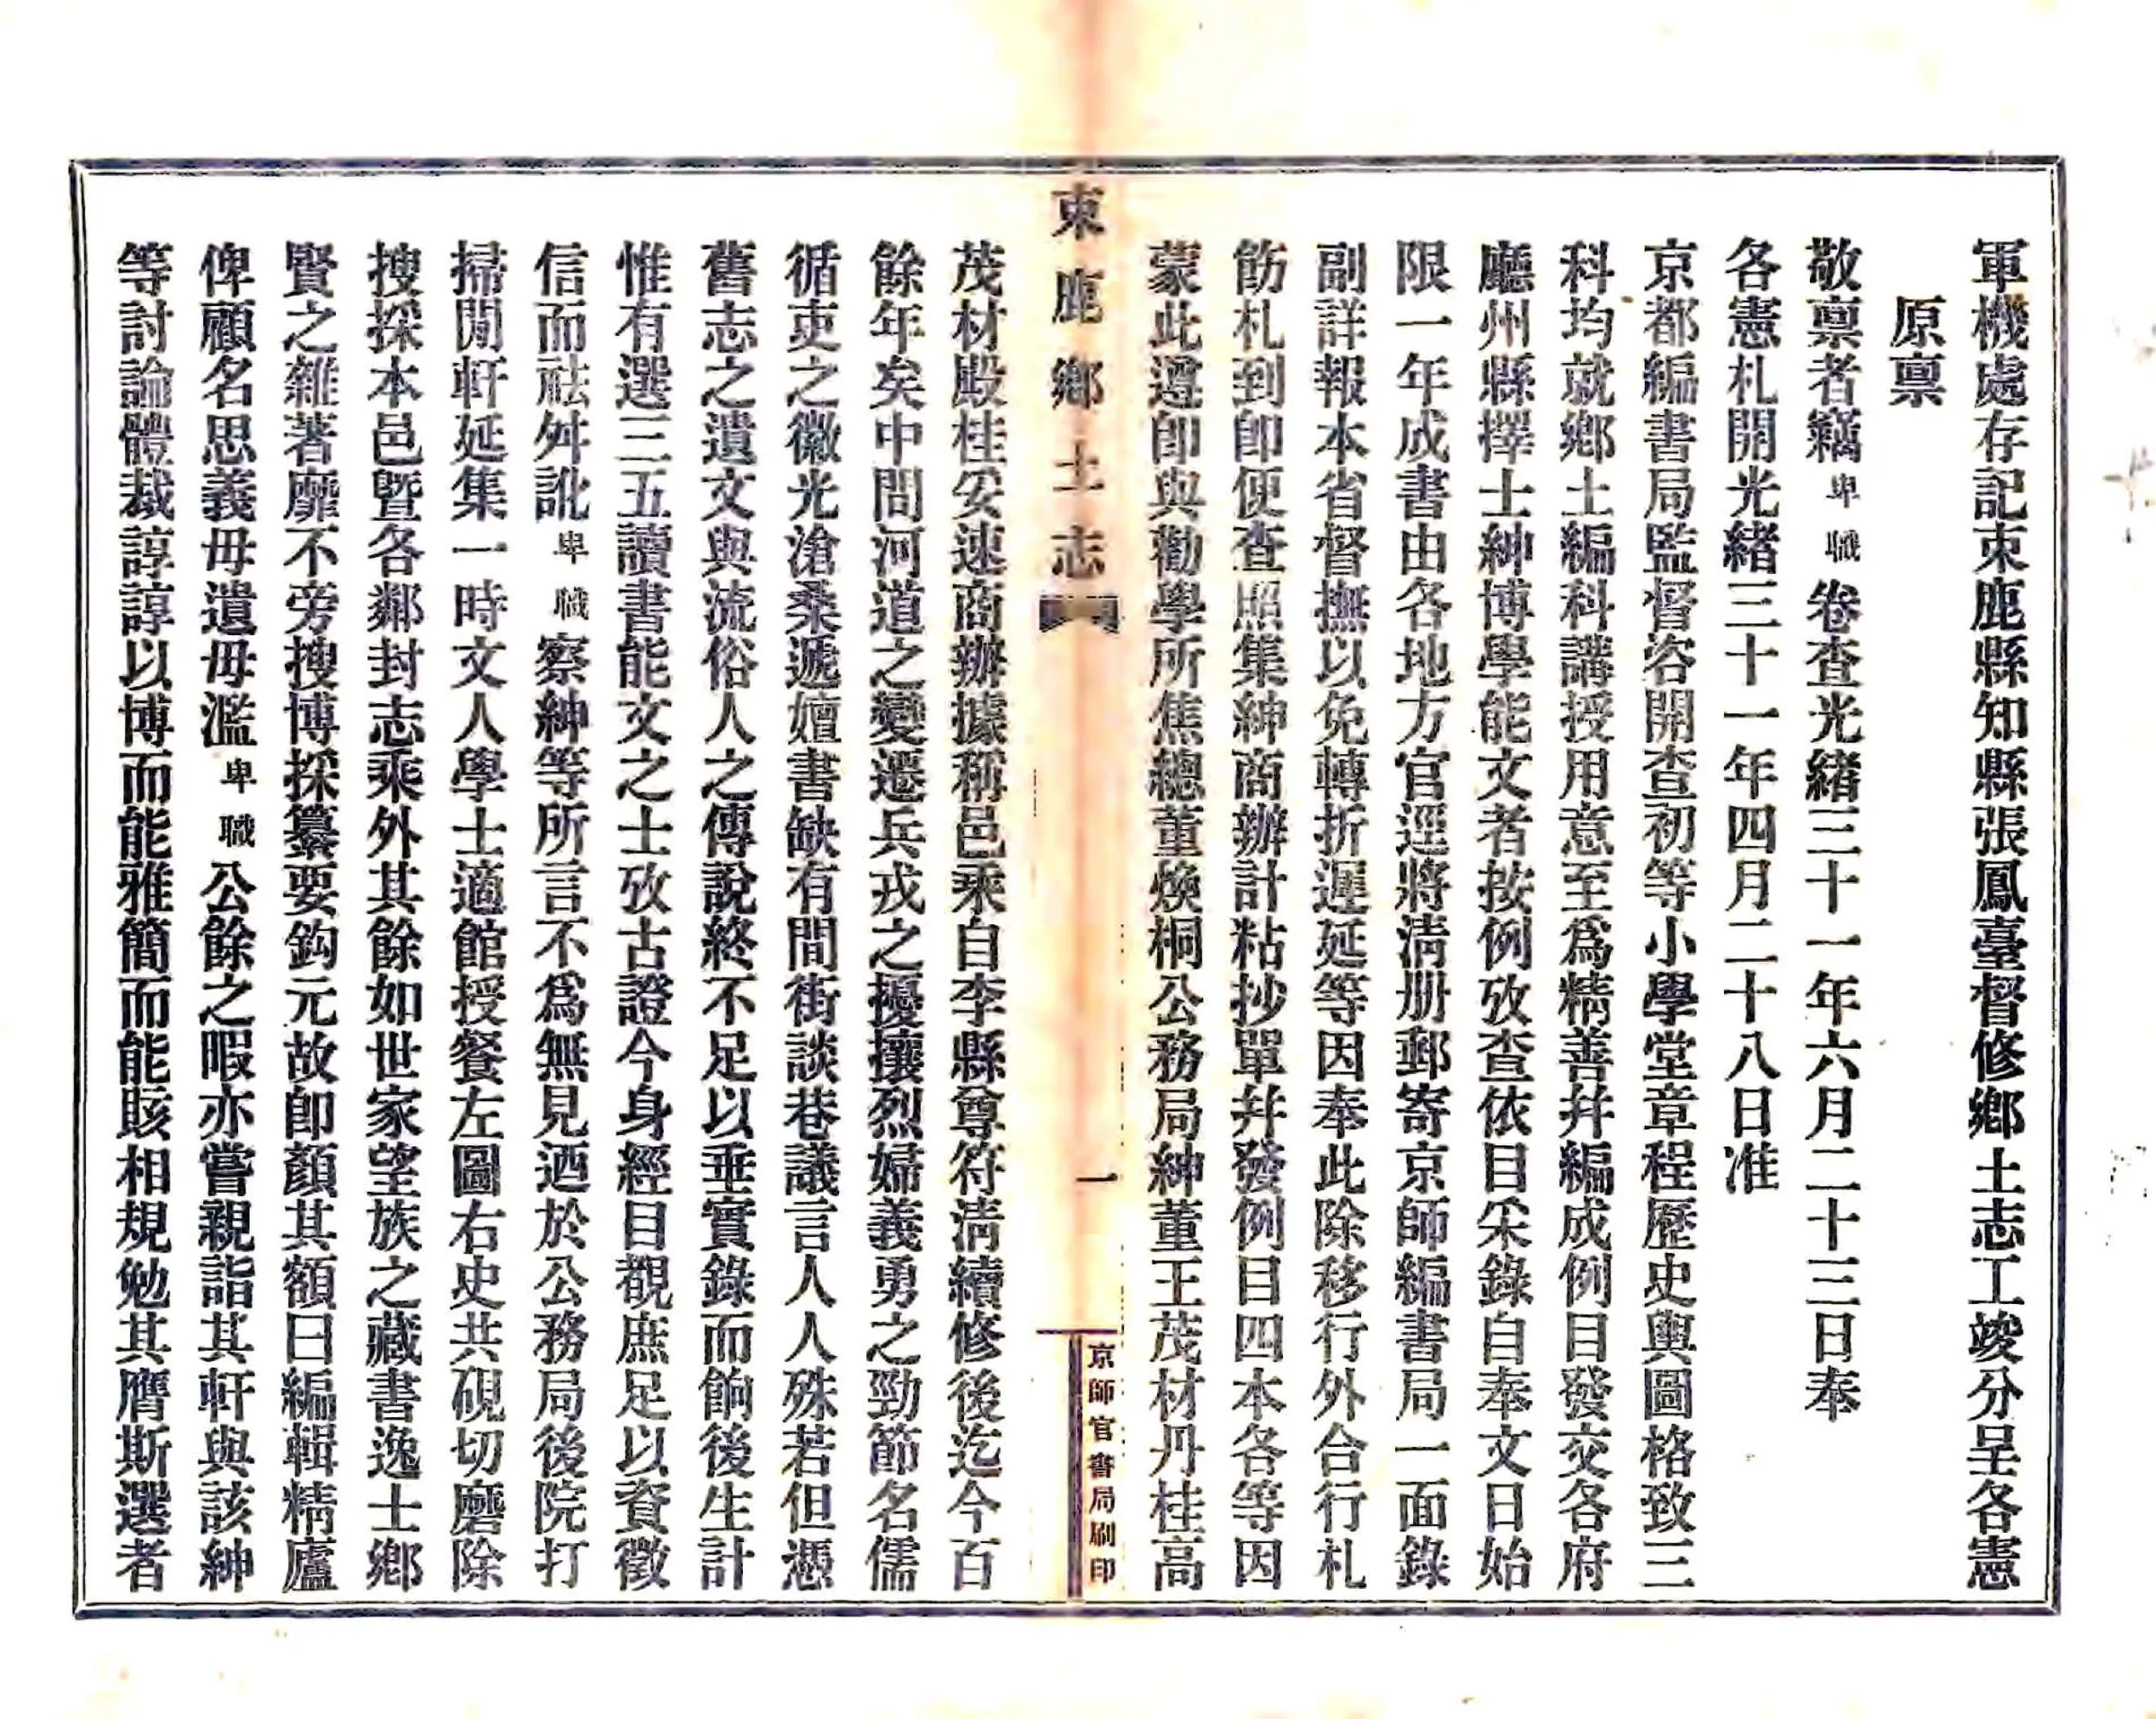 軍機處存記束鹿縣知縣張鳳臺督修鄉土志工竣分呈各憲
原禀
敬禀者竊卑職卷查光緒三十一年六月二十三日奉
各憲札開光緒三十一年四月二十八日准
京都編書局監督咨開查初等小學堂章程歷史輿圖格致三
科均就鄉土編科講授用意至爲精善幷編成例目發交各府
廳州縣擇士紳博學能文者按例攷查依目采錄自奉文日始
限一年成書由各地方官逕將淸册郵寄京師編書局一面錄
副詳報本省督撫以免轉折遲延等因奉此除移行外合行札
飭札到卽便查照集紳商辦計粘抄單幷發例目四本各等因
蒙此遵卽與勸學所焦總董煥桐公務局紳董王茂材丹桂高
束鹿鄉土志
一
京師官書局刷印
茂材殿桂妥速商辦據稱邑乘自李縣尊符淸續修後迄今百
餘年矣中間河道之變遷兵戎之擾攘烈婦義勇之勁節名儒
循吏之徽光滄桑遞嬗書缺有間街談巷議言人人殊若但憑
舊志之遺文與流俗人之傳說終不足以垂實錄而餉後生計
惟有選三五讀書能文之士攷古證今身經目覩庶足以資徵
信而祛舛訛卑職察紳等所言不爲無見迺於公務局後院打
掃閒軒延集一時文人學士適館授餐左圖右史共硯切磨除
搜採本邑曁各鄰封志乘外其餘如世家望族之藏書逸士鄉
賢之雜著靡不旁搜博採纂要鈎元故卽顏其額曰編輯精廬
俾顧名思義毋遺毋濫卑職公餘之暇亦嘗親詣其軒與該紳
等討論體裁諄諄以博而能雅簡而能賅相規勉其膺斯選者